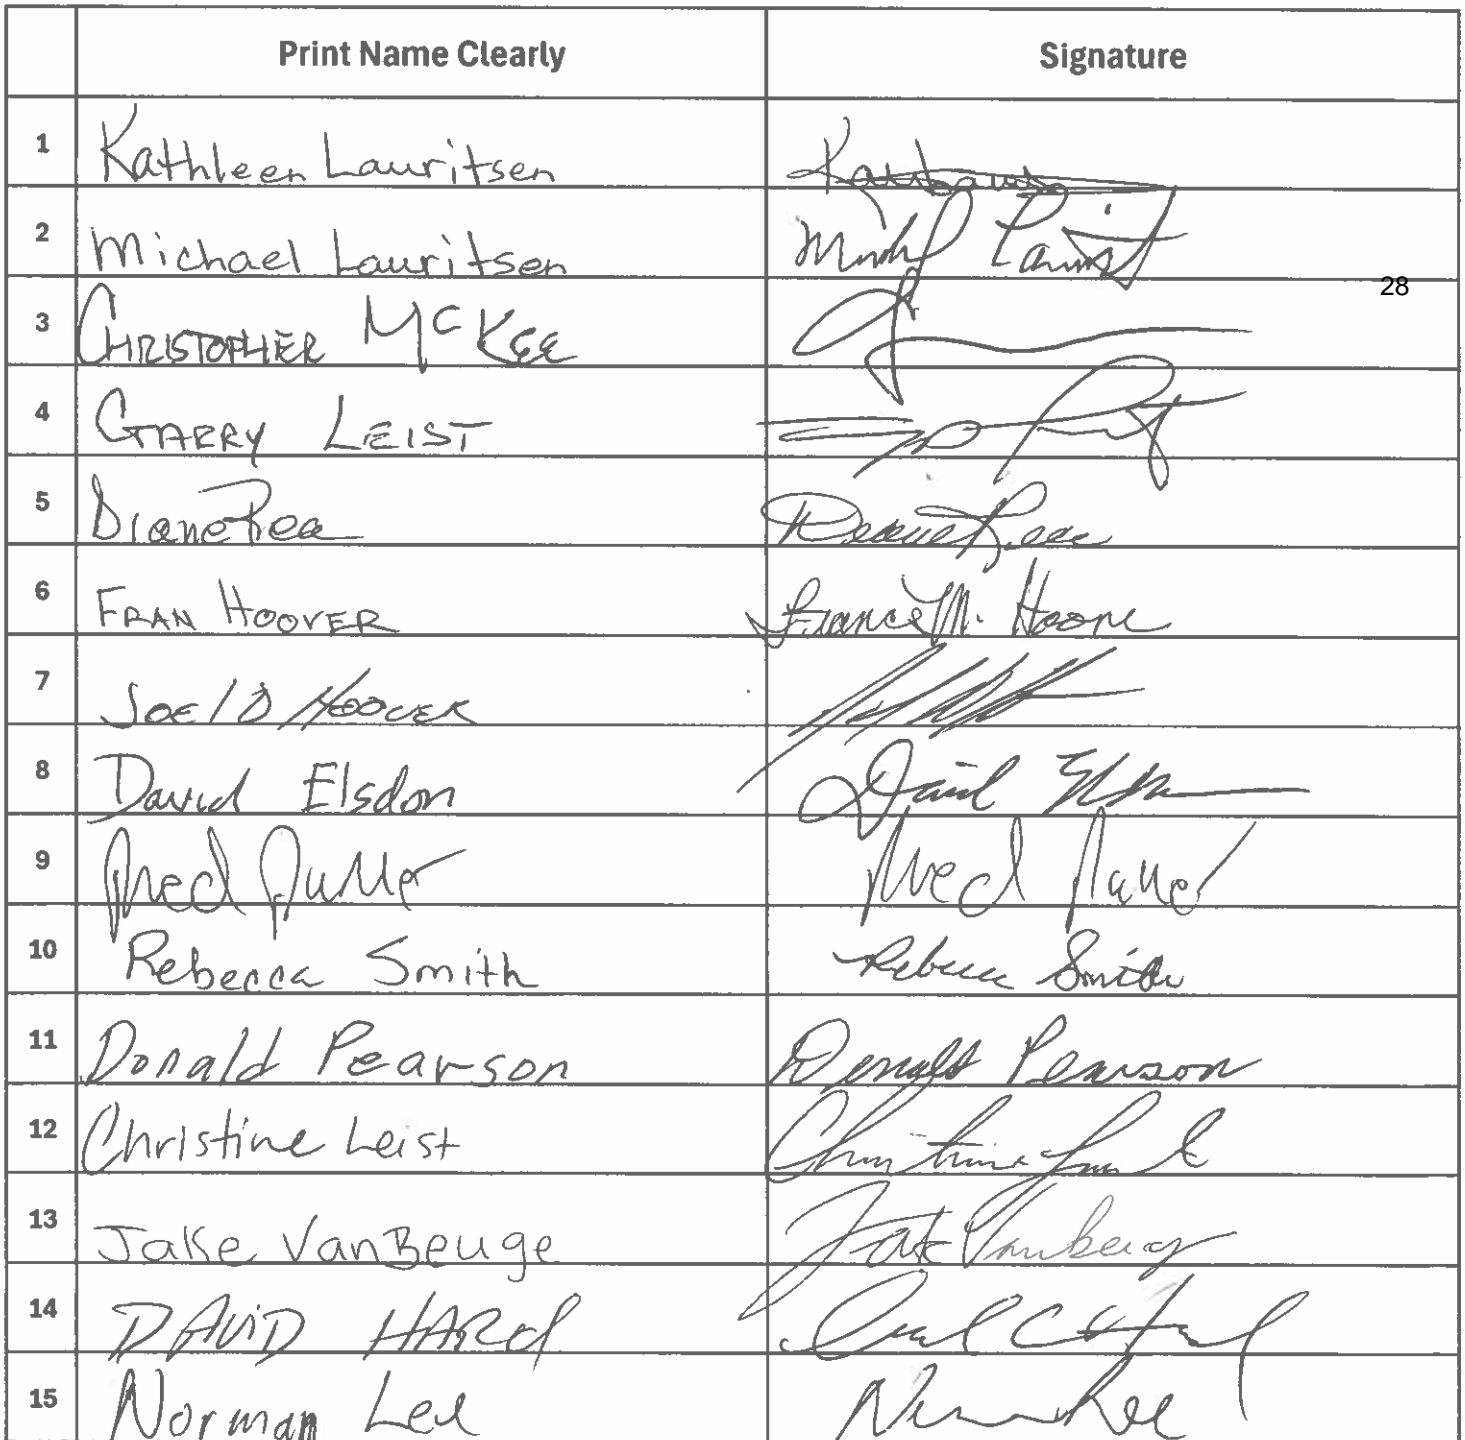 Print Name Clearly Signature
1 Kathleen Lauritsen
2 Michael Lauritsen
28
3 CHRISTOPHER McKEE
4 GARRY LEIST
5 Diane Rea Diane Rea
6 FRAN HOOVER Frances M. Hoover
7 JOEL D HOOVER
8 David Elsdon David
9
10 Rebecca Smith Rebecca Smith
11 Donald Pearson Donald Pearson
12 Christine Leist Christine Leist
13 Jake VanBeuge Jake
14 DAVID HARD
15 Norman Lee Norman Lee